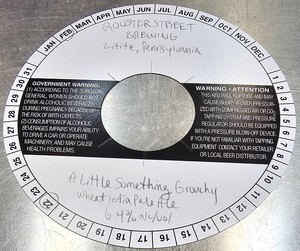 JAN FEB MAR APR MAY JUN JUL AUG SEP OCT NOV DEC
ROOSTER STREET
BREWING
Lititz, Pennsylvania
GOVERNMENT WARNING:
(1) ACCORDING TO THE SURGEON
GENERAL, WOMEN SHOULD NOT
DRINK ALCOHOLIC BEVERAGES
DURING PREGNANCY BECAUSE OF
THE RISK OF BIRTH DEFECTS.
(2) CONSUMPTION OF ALCOHOLIC
BEVERAGES IMPAIRS YOUR ABILITY
TO DRIVE A CAR OR OPERATE
MACHINERY, AND MAY CAUSE
HEALTH PROBLEMS.
WARNING • ATTENTION
THIS KEG WILL RUPTURE AND MAY
CAUSE INJURY IF OVER PRESSURIZED
WITH COMPRESSED AIR OR CO2
TAPPING SYSTEM AND PRESSURE
REGULATOR SHOULD BE EQUIPPED
WITH A PRESSURE BLOW-OFF DEVICE.
IF YOU'RE NOT FAMILIAR WITH TAPPING
EQUIPMENT CONTACT YOUR RETAILER
OR LOCAL BEER DISTRIBUTOR.
A Little Something Grouchy
Wheat India Pale Ale
6.4% alc/vol
1 2 3 4 5 6 7 8 9 10 11 12 13 14 15 16 17 18 19 20 21 22 23 24 25 26 27 28 29 30 31